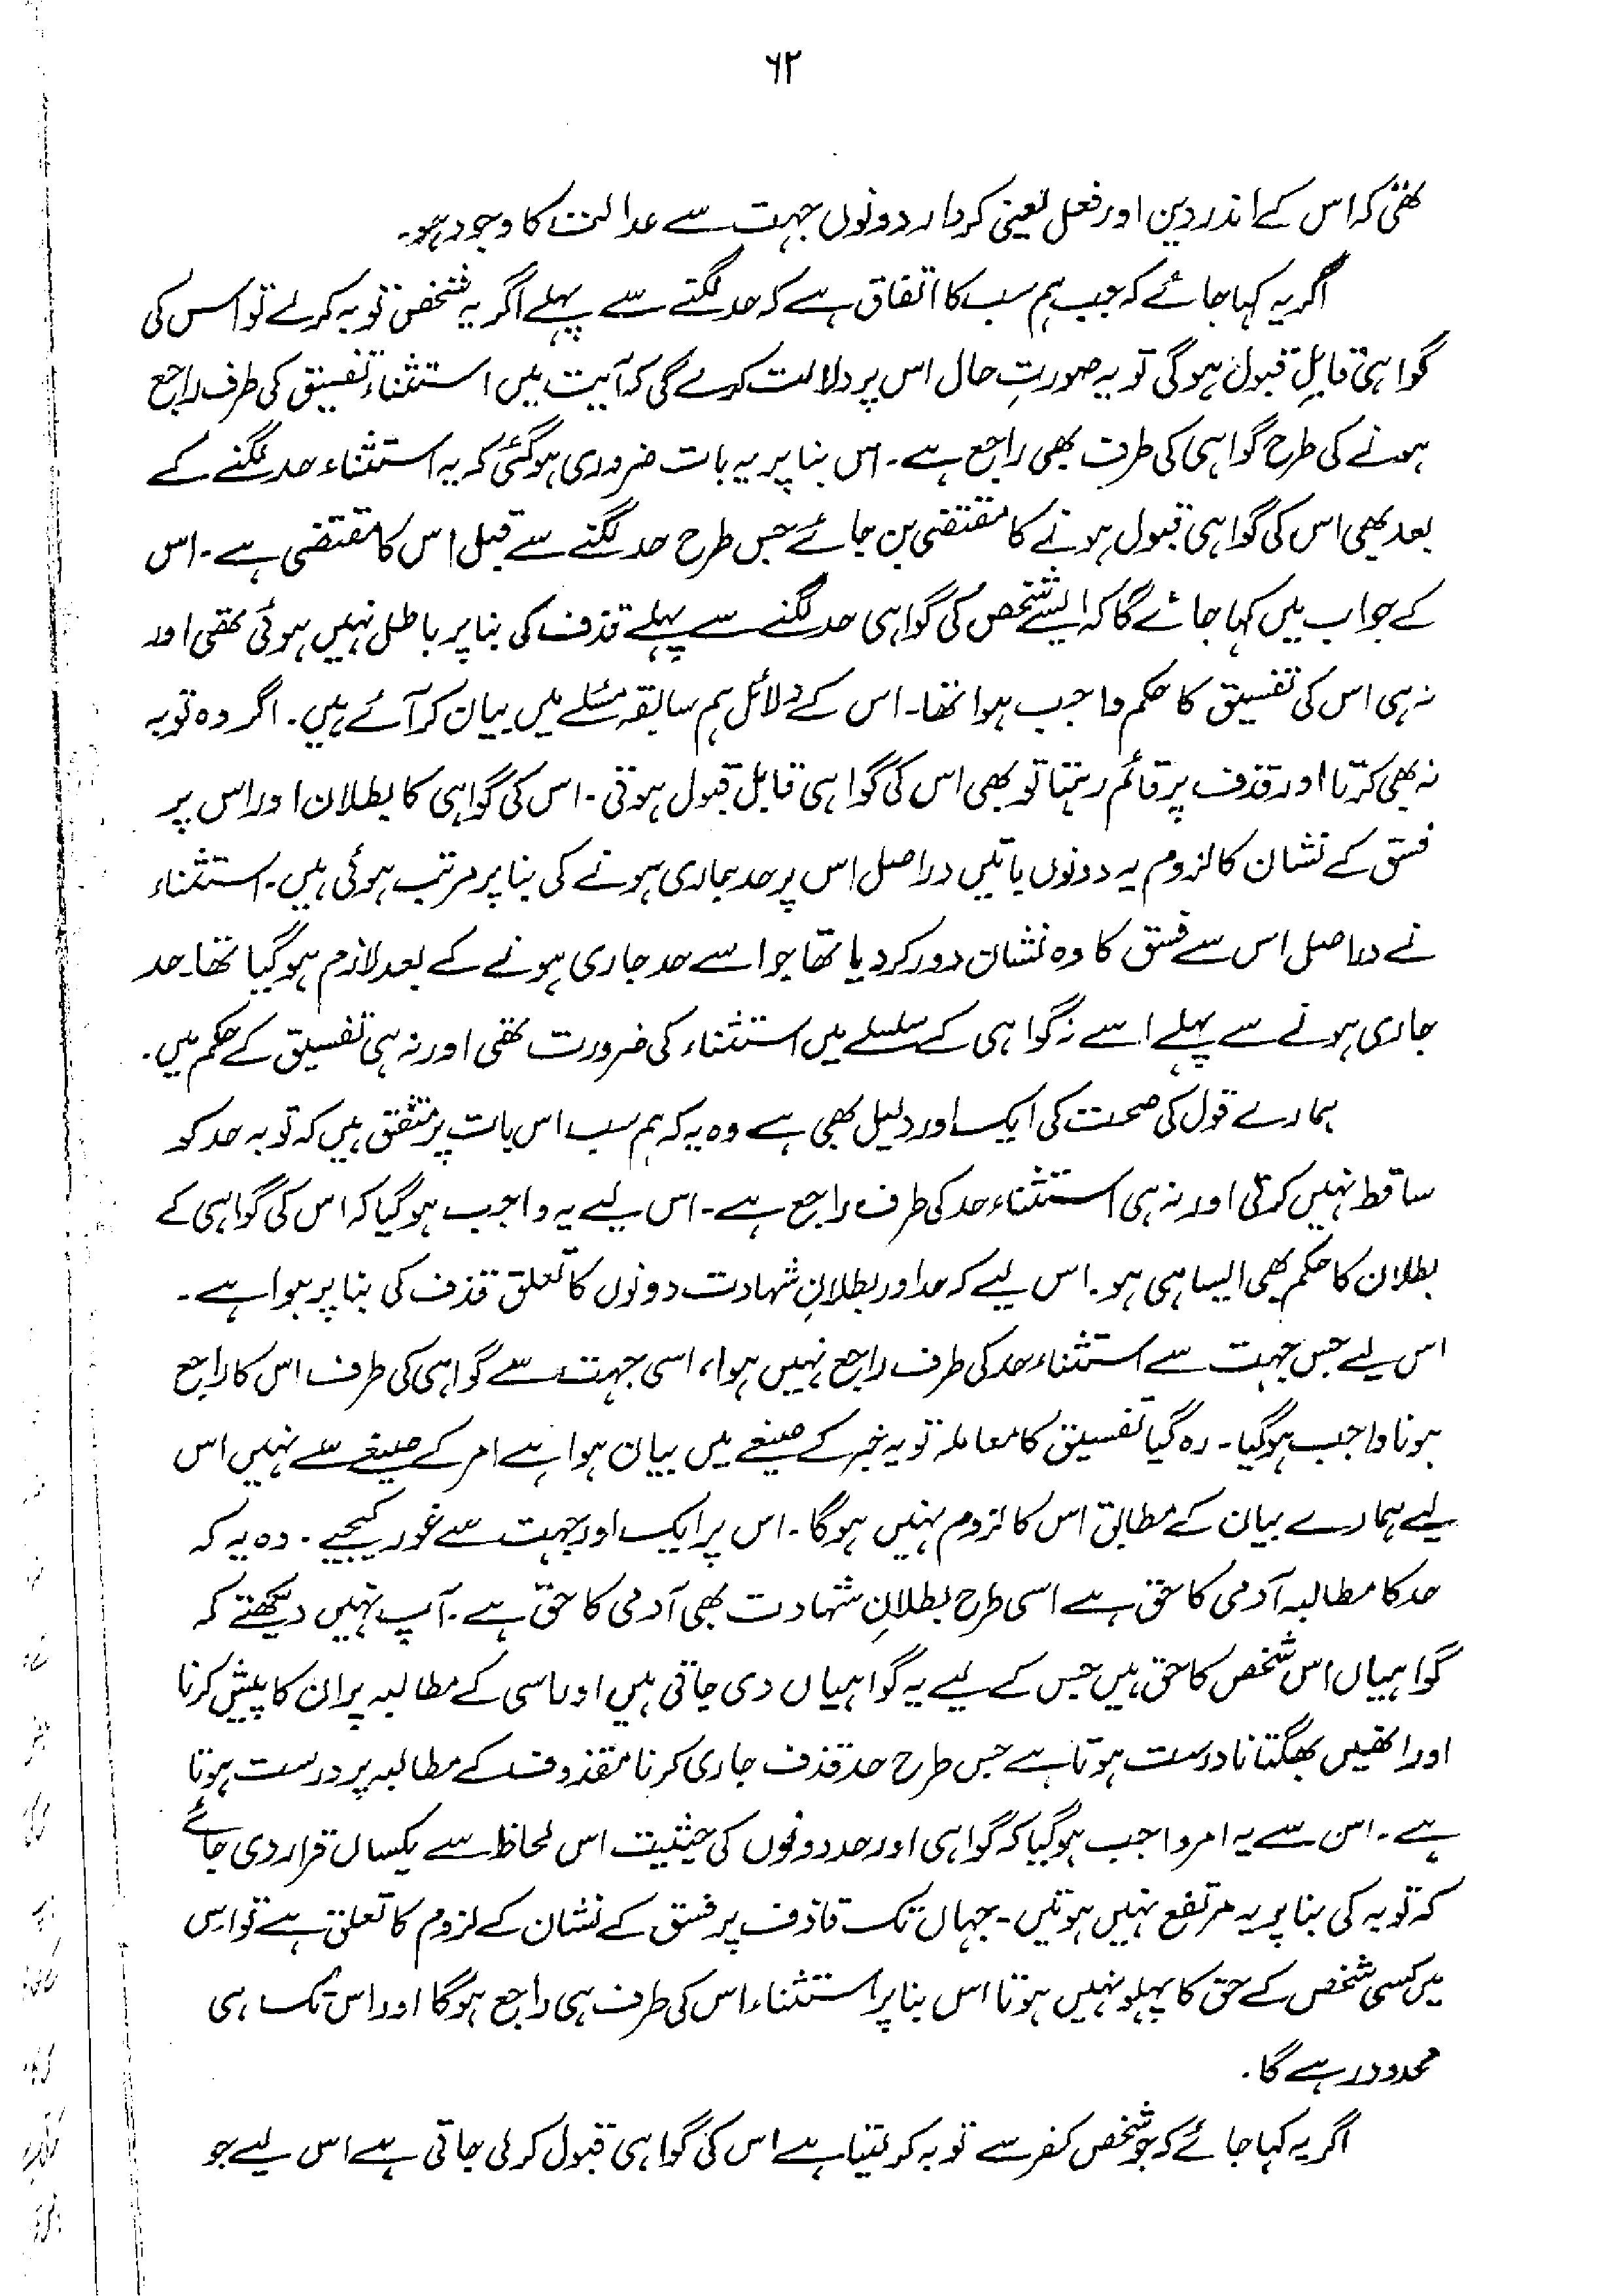 ۶۲
تھی کہ اس کے اندر دین اور فعل یعنی کردار دونوں جہت سے عدالت کا وجود ہو۔
اگر یہ کہا جائے کہ جب ہم سب کا اتفاق ہے کہ حد لگنے سے پہلے اگر یہ شخص توبہ کرلے تو اس کی
گواہی قابلِ قبول ہوگی تو یہ صورتِ حال اس پر دلالت کرے گی کہ آیت میں استثناء تفسیق کی طرف راجع
ہونے کی طرح گواہی کی طرف بھی راجع ہے۔ اس بنا پر یہ بات ضروری ہوگئی کہ یہ استثناء حد لگنے کے
بعد بھی اس کی گواہی قبول ہونے کا مقتضی بن جائے جس طرح حد لگنے سے قبل اس کا مقتضی ہے۔ اس
کے جواب میں کہا جائے گا کہ ایسے شخص کی گواہی حد لگنے سے پہلے قذف کی بنا پر باطل نہیں ہوئی تھی اور
نہ ہی اس کی تفسیق کا حکم واجب ہوا تھا۔ اس کے دلائل ہم سابقہ مسئلے میں بیان کر آئے ہیں۔ اگر وہ توبہ
نہ بھی کرتا اور قذف پر قائم رہتا تو بھی اس کی گواہی قابل قبول ہوتی۔ اس کی گواہی کا بطلان اور اس پر
فسق کے نشان کا لزوم یہ دونوں باتیں دراصل اس پر حد جاری ہونے کی بنا پر مرتب ہوئی ہیں۔ استثناء
نے دراصل اس سے فسق کا وہ نشان دور کر دیا تھا جو اسے حد جاری ہونے کے بعد لازم ہوگیا تھا۔ حد
جاری ہونے سے پہلے اسے نہ گواہی کے سلسلے میں استثناء کی ضرورت تھی اور نہ ہی تفسیق کے حکم میں۔
ہمارے قول کی صحت کی ایک اور دلیل بھی ہے وہ یہ کہ ہم سب اس بات پر متفق ہیں کہ توبہ حد کو
ساقط نہیں کرتی اور نہ ہی استثناء حد کی طرف راجع ہے۔ اس لیے یہ واجب ہوگیا کہ اس کی گواہی کے
بطلان کا حکم بھی ایسا ہی ہو۔ اس لیے کہ حد اور بطلانِ شہادت دونوں کا تعلق قذف کی بنا پر ہوا ہے۔
اس لیے جس جہت سے استثناء حد کی طرف راجع نہیں ہوا، اسی جہت سے گواہی کی طرف اس کا راجع
ہونا واجب ہوگیا۔ رہ گیا تفسیق کا معاملہ تو یہ خبر کے صیغے میں بیان ہوا ہے امر کے صیغے سے نہیں اس
لیے ہمارے بیان کے مطابق اس کا لزوم نہیں ہوگا۔ اس پر ایک اور جہت سے غور کیجیے۔ وہ یہ کہ
حد کا مطالبہ آدمی کا حق ہے اسی طرح بطلانِ شہادت بھی آدمی کا حق ہے۔ آپ نہیں دیکھتے کہ
گواہیاں اس شخص کا حق ہیں جس کے لیے یہ گواہیاں دی جاتی ہیں اور اسی کے مطالبہ پر ان کا پیش کرنا
اور انھیں بھگتانا درست ہوتا ہے جس طرح حد قذف جاری کرنا مقذوف کے مطالبہ پر درست ہوتا
ہے۔ اس سے یہ امر واجب ہوگیا کہ گواہی اور حد دونوں کی حیثیت اس لحاظ سے یکساں قرار دی جائے
کہ توبہ کی بنا پر یہ مرتفع نہیں ہوتیں۔ جہاں تک قاذف پر فسق کے نشان کے لزوم کا تعلق ہے تو اس
میں کسی شخص کے حق کا پہلو نہیں ہوتا اس بنا پر استثناء اس کی طرف ہی راجع ہوگا اور اس تک ہی
محدود رہے گا۔
اگر یہ کہا جائے کہ جو شخص کفر سے توبہ کر لیتا ہے اس کی گواہی قبول کر لی جاتی ہے اس لیے جو